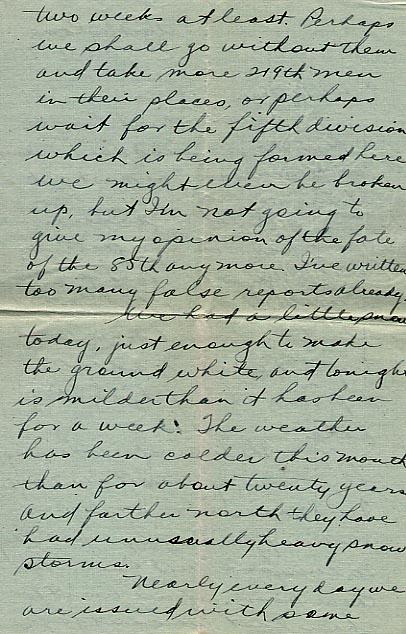 two weeks at least. Perhaps
we shall go without them
and take more 219th men
in their places, or perhaps
wait for the fifth division
which is being formed here
we might even be broken
up, but I'm not going to
give my opinion of the fate
of the 85th any more. I've written
too many false reports already.
We had a little snow
today, just enough to make
the ground white, and tonight
is milder than it has been
for a week. The weather
has been colder this month
than for about twenty years
and farther north they have
had unusually heavy snow
storms.
Nearly every day we
are issued with some